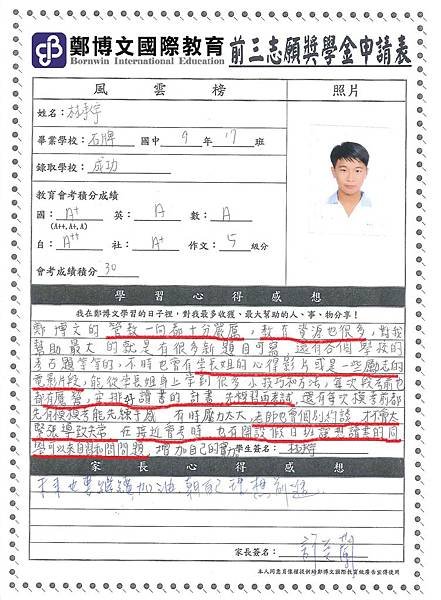 鄭博文國際教育
Bornwin International Education
前三志願獎學金申請表
風雲榜
照片
姓名：
畢業學校：石牌 國中 9 年 17 班
錄取學校：成功
教育會考積分成績
國：A+ 英：A 數：A
(A++, A+, A)
自：A++ 社：A+ 作文：5 級分
會考成績積分 30
學習心得感想
我在鄭博文學習的日子裡，對我最多收獲、最大幫助的人、事、物分享！
鄭博文的管教一向都十分嚴厲，教育資源也很多，對我
幫助最大的就是有很多新題目可寫，還有各個學校的
考古題等等的，不時也會有學長姐的心得影片或是一些勵志的
電影片段，能從學長姐身上學到很多小技巧和方法，每次段考前也
都有應戰，安排好讀書的計畫，先複習再考試，還有每次模考前都
先有模模考能先練手感，有時壓力太大，老師也會個別約談，不會太
緊張導致失常，在接近會考時，也有開設假日班讓想讀書的同
學可以來自讀和問問題，增加自己的實力 學生簽名：
家長心得感想
未來也要繼續加油朝自己理想前進
家長簽名：
本人同意肖像權提供給鄭博文國際教育做廣告宣傳使用